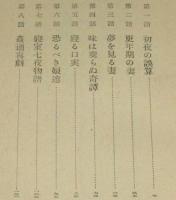 第一話 初夜の誤算
第二話 更年期の妻
第三話 夢を見る妻
第四話 味は変らぬ奇譚
第五話 寝る口実
第六話 恐るべき娘達
第七話 寝室七夜物語
第八話 姦通喜劇